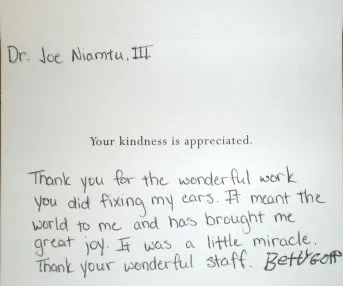 Dr. Joe Niamtu, III
Your kindness is appreciated.
Thank you for the wonderful work
you did fixing my ears. It meant the
world to me and has brought me
great joy. It was a little miracle.
Thank your wonderful staff. Betty Goff